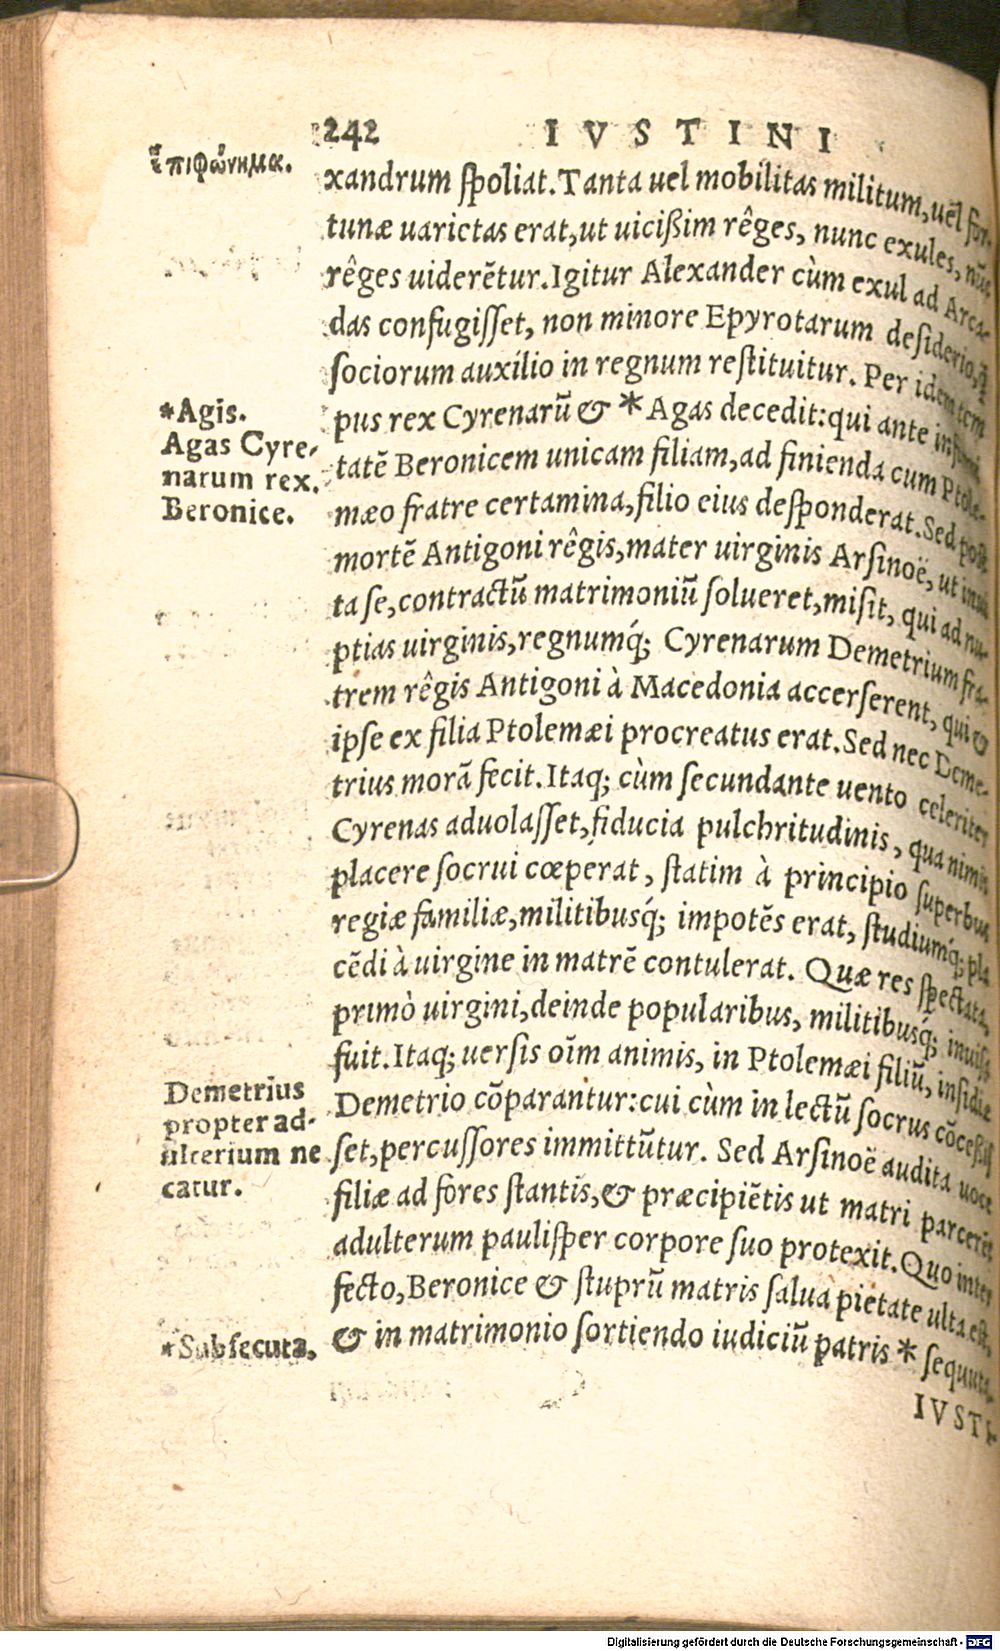 242 IVSTINI
ἐπιφώνημα.
xandrum ſpoliat. Tanta uel mobilitas militum, uel for-
tunæ uarietas erat, ut uicißim rêges, nunc exules, nūc
rêges uiderētur. Igitur Alexander cùm exul ad Arca-
das confugiſſet, non minore Epyrotarum deſiderio, q̄
ſociorum auxilio in regnum reſtituitur. Per idem tem
pus rex Cyrenarū & * Agas decedit: qui ante infirmi
tatē Beronicem unicam filiam, ad finienda cum Ptole-
mæo fratre certamina, filio eius deſponderat. Sed poſt
mortē Antigoni rêgis, mater uirginis Arſinoë, ut inui
ta ſe, contractū matrimoniū ſolueret, miſit, qui ad nu-
ptias uirginis, regnumq́; Cyrenarum Demetrium fra-
trem rêgis Antigoni à Macedonia accerſerent, qui &
ipſe ex filia Ptolemæi procreatus erat. Sed nec Deme-
trius morā fecit. Itaq; cùm ſecundante uento celeriter
Cyrenas aduolaſſet, fiducia pulchritudinis, qua nimis
placere ſocrui cœperat, ſtatim à principio ſuperbus
regiæ familiæ, militibusq́; impotēs erat, ſtudiumq́; pla
cēdi à uirgine in matrē contulerat. Quæ res ſpectata,
primò uirgini, deinde popularibus, militibusq́; inuiſa
fuit. Itaq; uerſis oīm animis, in Ptolemæi filiū, inſidiæ
Demetrio cōparantur: cui cùm in lectū ſocrus cōceßiſ
ſet, percuſſores immittūtur. Sed Arſinoë audita uoce
filiæ ad fores ſtantis, & præcipiētis ut matri parceret
adulterum pauliſper corpore ſuo protexit. Quo inter
fecto, Beronice & ſtuprū matris ſalua pietate ulta eſt,
& in matrimonio ſortiendo iudiciū patris * ſequuta.
IVSTI
*Agis.
Agas Cyre-
narum rex.
Beronice.
Demetrius
propter ad-
ulterium ne
catur.
*Subſecuta.
Digitalisierung gefördert durch die Deutsche Forschungsgemeinschaft - DFG